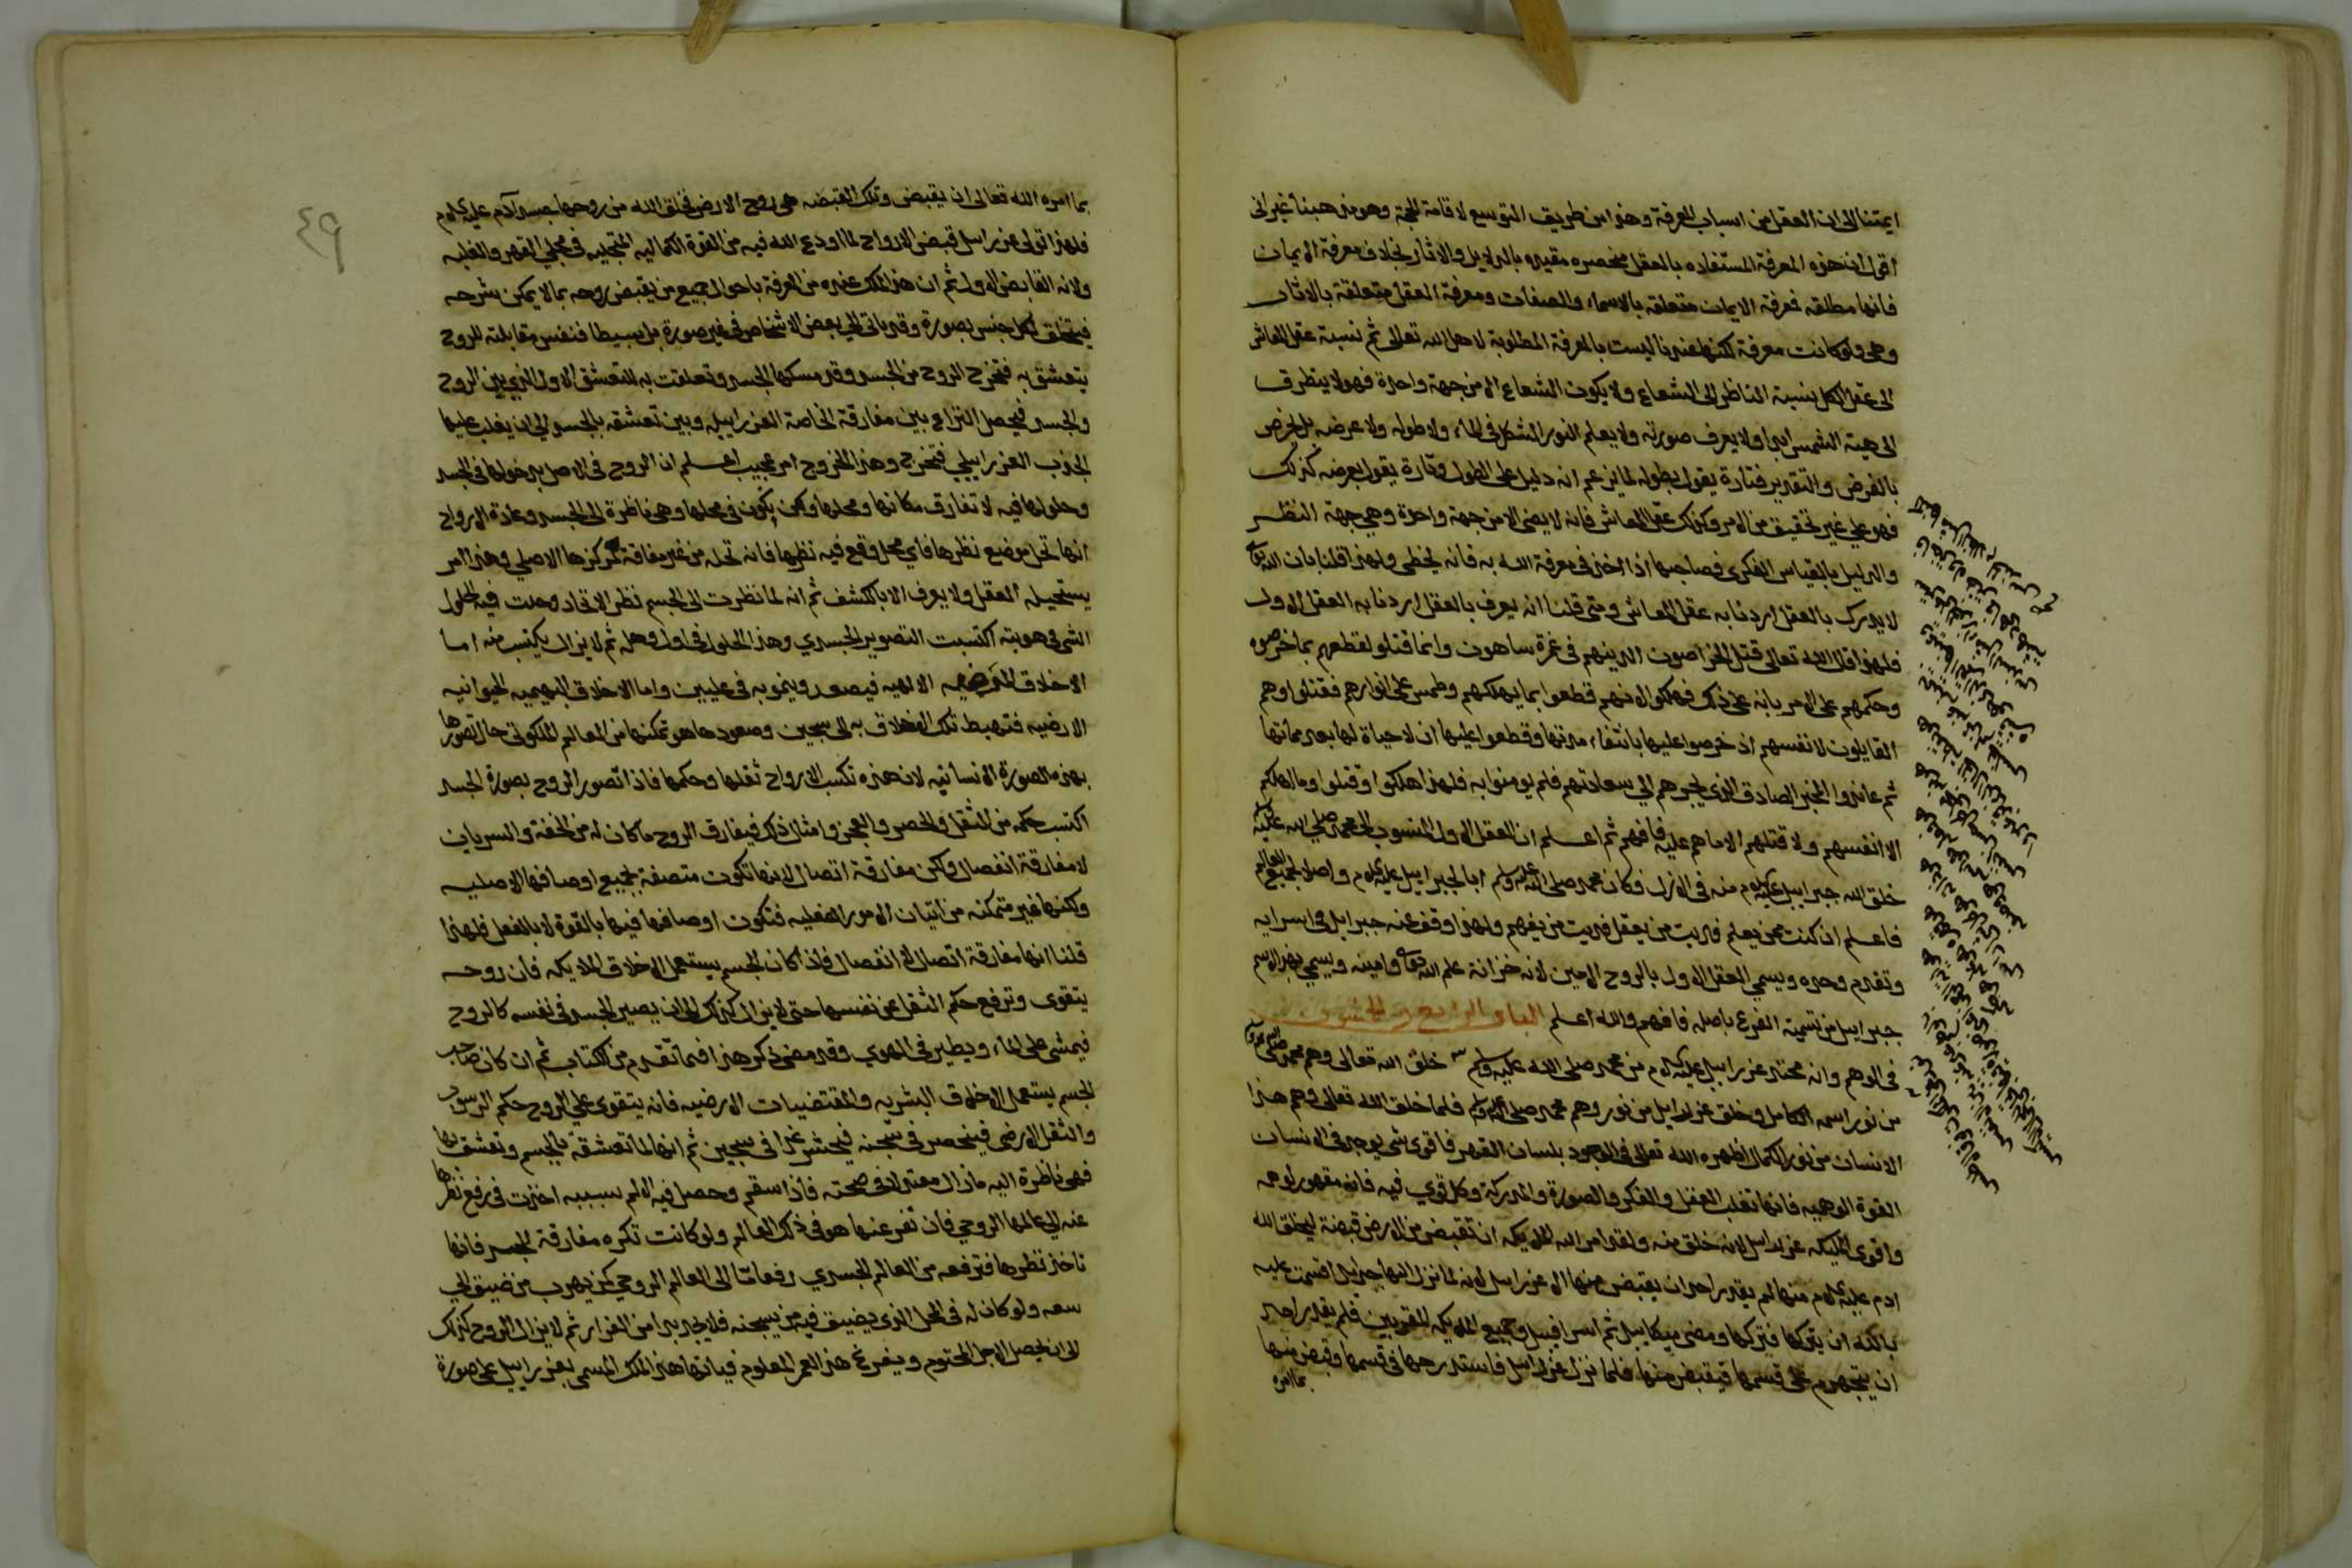 ايمتنا الى ان العقل من اسباب المعرفة وهذا من طريق التوسع لاقامة الحجة وهو مذهبنا غير اني
اقول ان هذه المعرفة المستفاده بالعقل منحصره مقيده بالدلايل والاثار بخلاف معرفة الايمان
فانها مطلقه فمعرفة الايمان متعلقه بالاسماء والصفات ومعرفة العقل متعلقة بالاثار
وهي ولو كانت معرفة لكنها عندنا ليست بالمعرفة المطلوبة لاهل الله تعالى ثم نسبة عقل المعاش
الى عقل الكل نسبة الناظر الى الشعاع ولا يكون الشعاع الا من جهة واحدة فهو لا يتطرق
الى هيئة الشمس ابدا ولا يعرف صورته ولا يعلم النور المتشكل في الماء ولا طوله ولا عرضه بل يخرص
بالفرض والتقدير فتارة يقول بطوله لما يزعم انه دليل على الطول وتارة يقول بعرضه كذلك
فهو على غير تحقيق من الامر وكذلك عقل المعاش فانه لا يضى الا من جهة واحدة وهي جهة النظر
والدليل بالقياس الفكري فصاحبها اذا اخذ في معرفة الله به فانه يخطى ولهذا قلنا بان الله تعالى
لا يدرك بالعقل اردنا به عقل المعاش ومتى قلنا انه يعرف بالعقل اردنا به العقل الاول
فلهذا قال الله تعالى قتل الخراصون الذين هم في غمرة ساهون وانما قتلوا لقطعهم بما خرصوه
وحكمهم على الامر بانه على ذلك فهلكوا لانهم قطعوا بما يهلكهم وطمس على انوارهم فقتلوا وهم
القايلون لانفسهم اذ خرصوا عليها بانتفاء مدتها وقطعوا عليها ان لا حياة لها بعد مماتها
ثم عاندوا المخبر الصادق الذي يجرهم الي سعادتهم فلم يومنوا به فلهذا هلكوا وقتلوا وما اهلكهم
الا انفسهم ولا قتلهم الا ما هم عليه فافهم ثم اعلم ان العقل الاول المنسوب الى محمد صلى الله عليه وسلم
خلق الله جبراييل عليه السلام منه في الازل فكان محمد صلى الله عليه وسلم ابا لجبراييل عليه السلام واصلا لجميع العالم
فاعلم ان كنت ممن يعلم فديت من يعقل فديت من يفهم ولهذا وقف عنه جبرايل في اسرايه
وتقدم وحده ويسمي العقل الاول بالروح الامين لانه خزانة علم الله تعالى وامينه ويسمي بهذا الاسم
جبراييل من تسمية الفرع باصله فافهم والله اعلم الباب الرابع والخمسون
في الوهم وانه محتد عزراييل عليه السلام من محمد صلى الله عليه وسلم خلق الله تعالى وهم محمد صلى الله عليه وسلم
من نور اسمه الكامل وخلق عزراييل من نور وهم محمد صلى الله عليه وسلم فلما خلق الله تعالى وهم هذا
الانسان من نوره الكمال اظهره الله تعالى في الوجود بلسان القهر فاقوى شي يوجد في الانسان
القوة الوهميه فانها تغلب العقل والفكر والصورة والمدركة وكل قوي فيه فانه مقهور لوهمه
واقوى المليكه عزراييل لانه خلق منه ولقد امر الله الملايكه ان تقبض من الارض قبضة ليخلق الله
ادم عليه السلام منها لم يقدر احد ان يقبض منها الا عزراييل لانه لما نزل اليها جبرايل اقسمت عليه
بالله ان يتركها فتركها ومضى ميكاييل ثم اسرافيل وجميع الملايكه المقربين فلم يقدر احد
ان يتجهرم على قسمها فيقبض منها فلما نزل عزراييل فاستدرجها في قسمها وقبض منها
بما امره
٤٩
بما امره الله تعالى ان يقبض وتلك القبضه هي روح الارض فخلق الله من روحها جسد آدم عليه السلام
فلهذا تولى عزراييل قبض الارواح لما اودع الله فيه من القوة الكماليه المتجليه في مجلى القهر والغلبه
ولانه القابض الاول ثم ان هذا الملك عنده من المعرفة باحوال جميع من يقبض روحه بما لا يمكن شرحه
فيتخلق لكل جنس بصورة وقد ياتي الي بعض الاشخاص في غير صورة بل بسيطا فنفس مقابلته للروح
يتعشق به فتخرج الروح من الجسد وقد مسكها الجسد وتعلقت به للتعشق الاول الذي بين الروح
والجسد فيحصل النزاع بين مفارقة الخاصة العزراييليه وبين تعشقه بالجسد الي ان يغلب عليها
الجذب العزراييلي فتخرج وهذا الخروج امر عجيب اعلم ان الروح في الاصل بدخولها في الجسد
وحلولها فيه لا تفارق مكانها ومحلها ولكن تكون في محلها وهي ناظرة الى الجسد وعادة الارواح
انها تحل موضع نظرها فاي محل وقع فيه نظرها فانه تحله من غير مفارقة لمركزها الاصلي وهذا امر
يستحيله العقل ولا يعرف الا بالكشف ثم انه لما نظرت الى الجسم نظر الاتحاد وحلت فيه حلول
الشي في هويته اكتسبت التصوير الجسدي وهذا الحلول في اول وهله ثم لا يزال يكتسب منه اما
الاخلاق المرضيه الالهيه فيصعد وينمو به في عليين واما الاخلاق البهيميه الحيوانيه
الارضيه فتهبط تلك الاخلاق به الى سجين وصعودها هو تمكنها من العالم الملكوتي حال تصورها
بهذه الصورة الانسانيه لان هذه تكسب الارواح ثقلها وحكمها فاذا تصور الروح بصورة الجسد
اكتسب حكمه من الثقل والحصر والعجز وامثال ذلك فيفارق الروح ما كان له من الخفة والسريان
لا مفارقة انفصال ولكن مفارقة اتصال لانها تكون متصفة بجميع اوصافها الاصليه
ولكنها غير متمكنه من اتيان الامور الفعليه فتكون اوصافها فيها بالقوة لا بالفعل فلهذا
قلنا انها مفارقة اتصال لا انفصال فاذا كان الجسم يستعمل الاخلاق الملايكه فان روحه
يتقوى وترفع حكم الثقل عن نفسها حتى لا يزال كذلك الى ان يصير الجسد في نفسه كالروح
فيمشى على الماء ويطير في الهوي وقد مضى ذكر هذا فيما تقدم من الكتاب ثم ان كان صاحب
الجسم يستعمل الاخلاق البشريه والمقتضيات الارضيه فانه يتقوي علي الروح حكم الرسوب
والثقل الارضي فينحصر في سجنه فيحشر غدا في سجين ثم انها لما تعشقت بالجسم وتعشق بها
فهي ناظرة اليه ما زال معتدلا في صحته فاذا سقم وحصل فيه الالم بسببه اخذت في رفع نظرها
عنه الي عالمها الروحي فان تفرعنها هو في ذلك العالم ولو كانت تكره مفارقة الجسد فانها
تاخذ نظرها فترفعه من العالم الجسدي رفعا ما الى العالم الروحي كمن يهرب من ضيق الي
سعه ولو كان له في المحل الذي يضيق فيه من يسجنه فلا يجد بدا من الفرار ثم لا يزال الروح كذلك
الى ان يحصل الاجل المحتوم ويفرغ هذا العمر المعلوم فياتيها هذا الملك المسمى بعزراييل على صورة